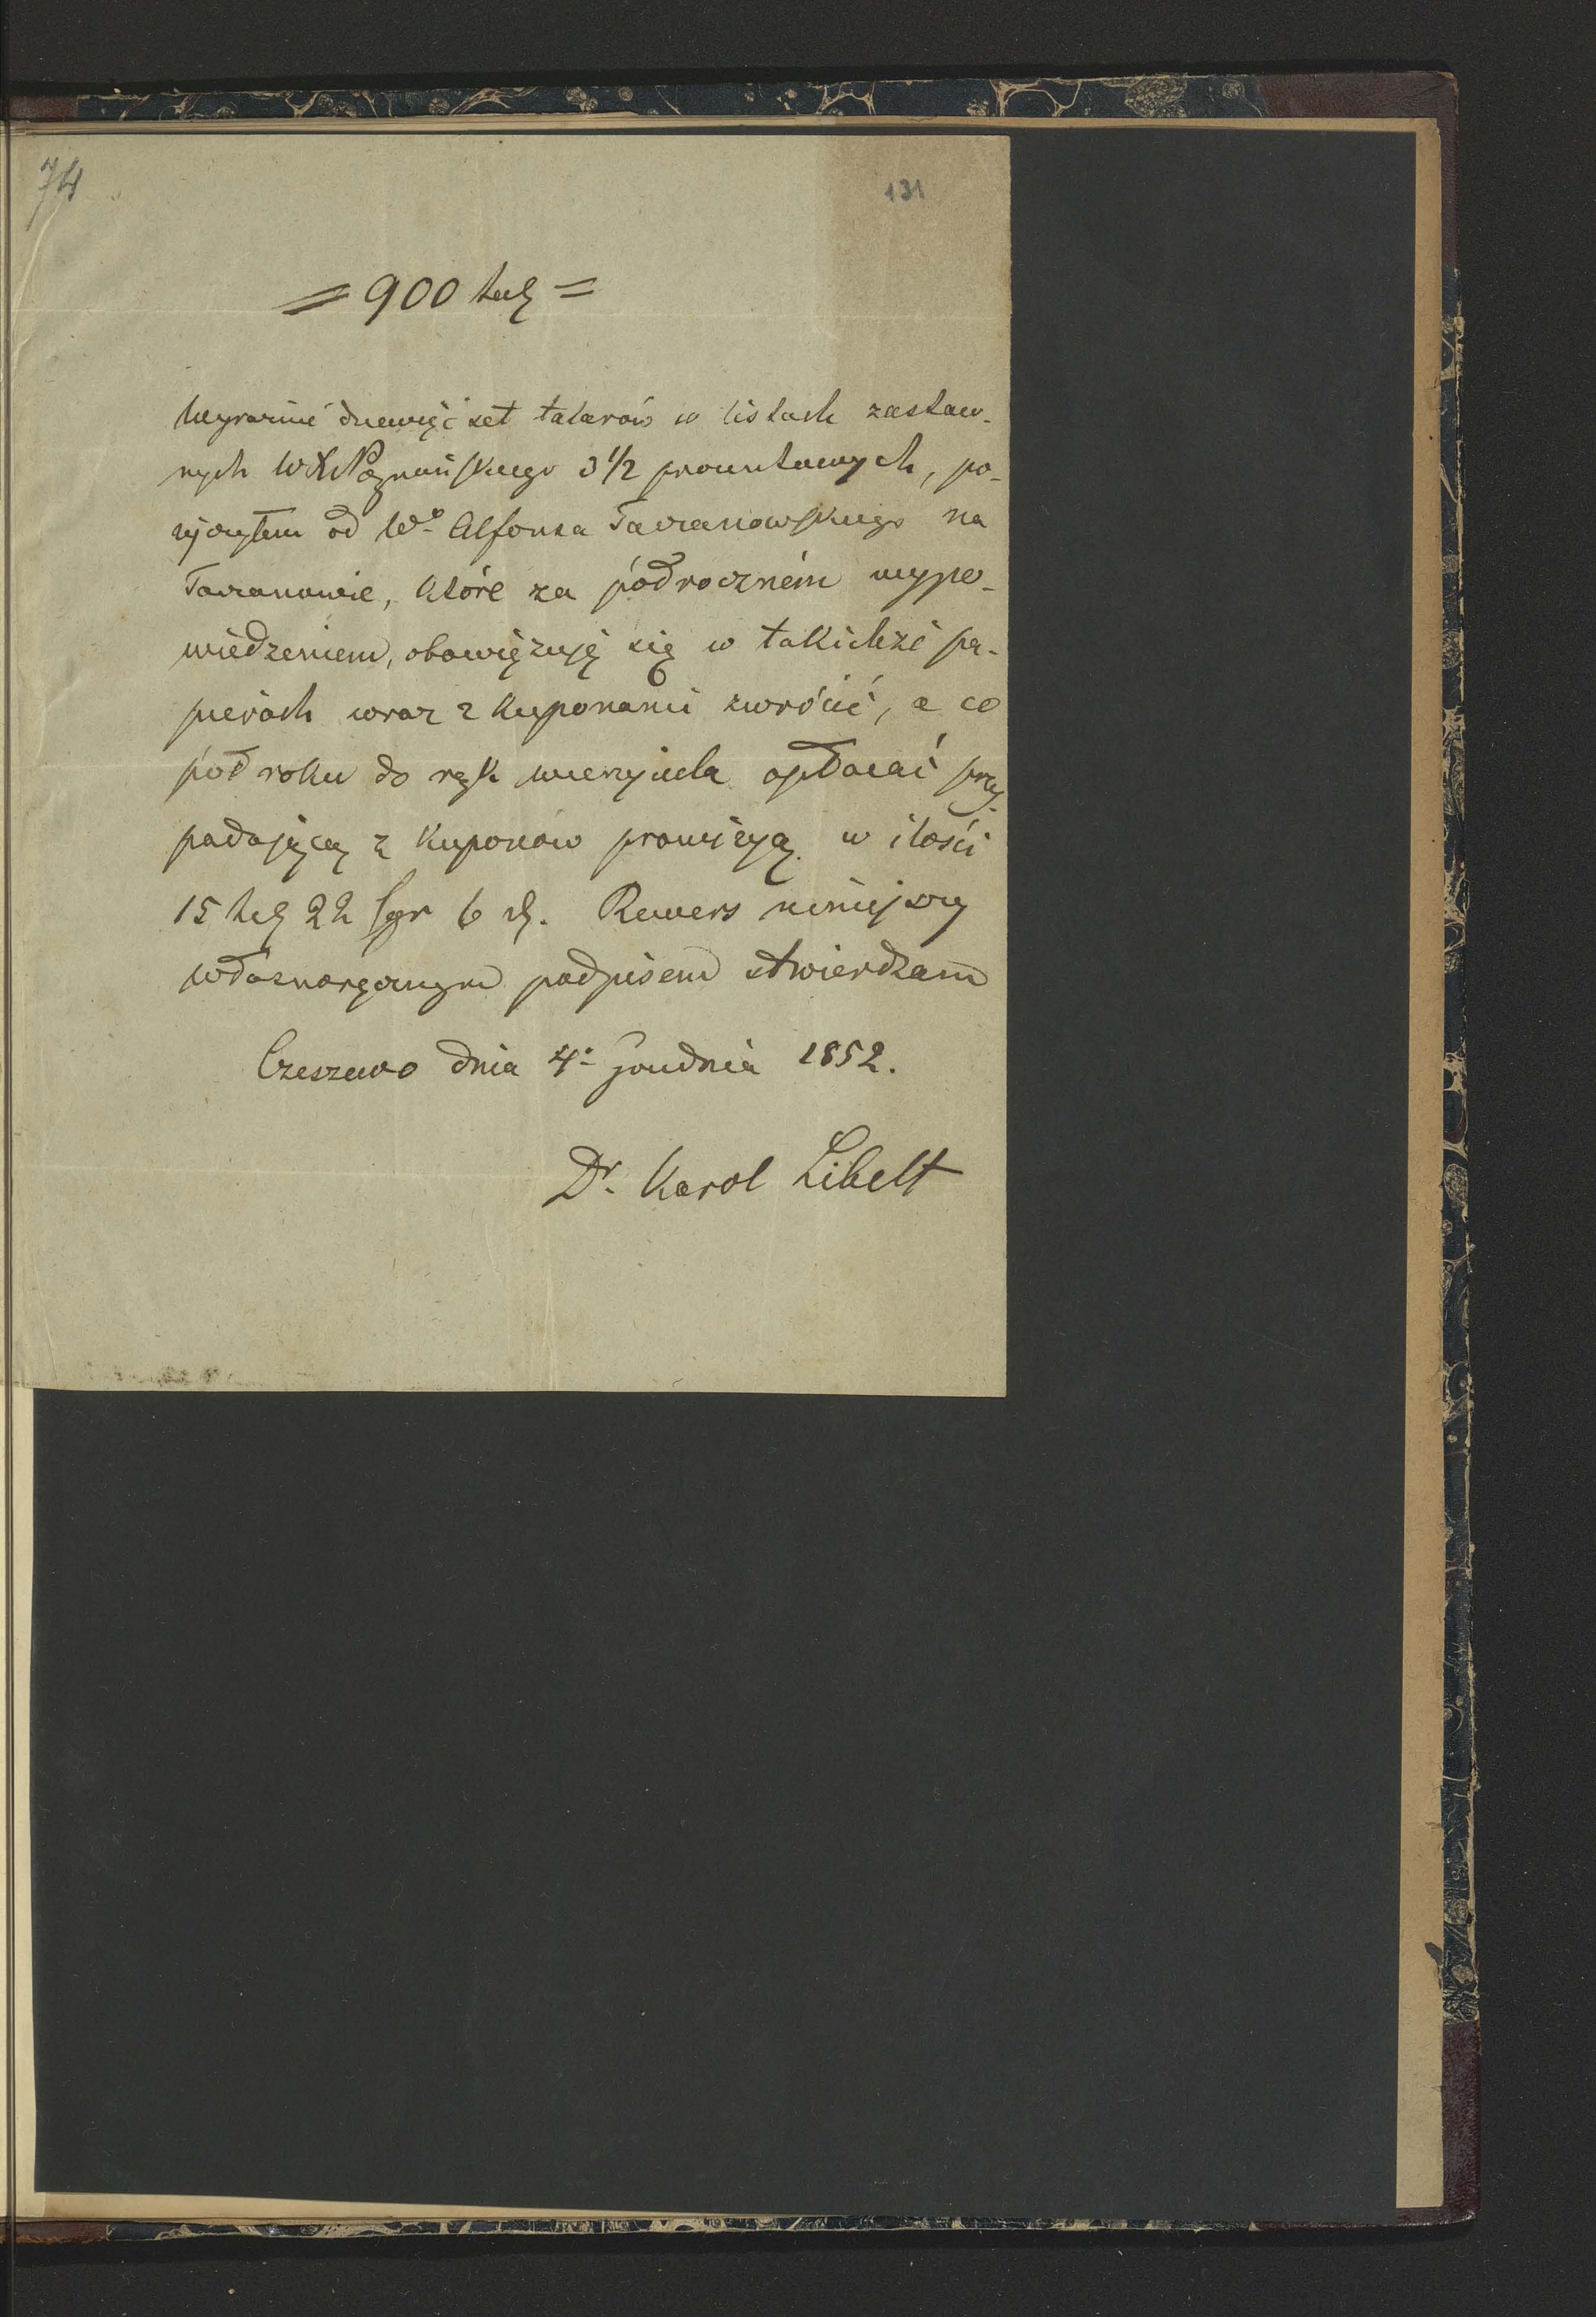 74
131
= 900 tal =
Wyraźnie dziewięć set talarów w listach zastaw-
nych W X Poznańskiego 3 1/2 procentowych, po-
życzyłem od Wo Alfonsa Taczanowskiego na
Taczanowie, które za półroczném wypo-
wiedzeniem, obowięzuję się w takichże pa-
pierach wraz z kuponami zwrócić, a co
pół roku do rąk wierzyciela opłacać przy-
padającą z kuponów prowizyą w ilości
15 tal 22 sgr 6 d. Rewers niniejszy
własnoręcznym podpisem stwierdzam
Czeszewo dnia 4. Grudnia 1852.
Dr. Karol Libelt